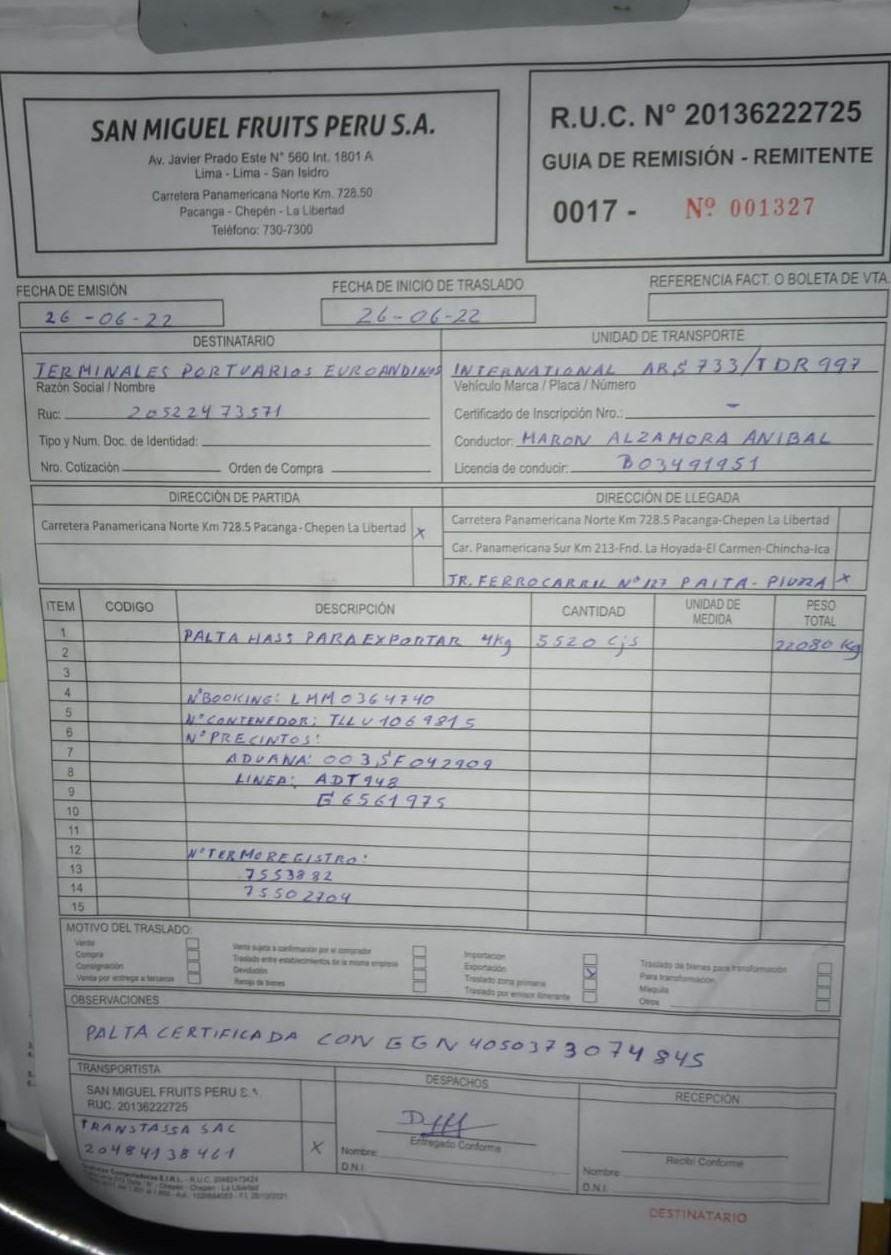 SAN MIGUEL FRUITS PERU S.A.
Av. Javier Prado Este N° 560 Int. 1801 A
Lima - Lima - San Isidro
Carretera Panamericana Norte Km. 728.50
Pacanga - Chepén - La Libertad
Teléfono: 730-7300
R.U.C. N° 20136222725
GUIA DE REMISIÓN - REMITENTE
0017 - Nº 001327
FECHA DE EMISIÓN
26-06-22
FECHA DE INICIO DE TRASLADO
26-06-22
REFERENCIA FACT. O BOLETA DE VTA.
DESTINATARIO
TERMINALES PORTUARIOS EUROANDINOS
Razón Social / Nombre
Ruc: 20522473571
Tipo y Num. Doc. de Identidad:
Nro. Cotización Orden de Compra
UNIDAD DE TRANSPORTE
INTERNATIONAL ARS733/TDR997
Vehículo Marca / Placa / Número
Certificado de Inscripción Nro.: -
Conductor: MARON ALZAMORA ANIBAL
Licencia de conducir: B03491951
DIRECCIÓN DE PARTIDA
Carretera Panamericana Norte Km 728.5 Pacanga-Chepen La Libertad X
DIRECCIÓN DE LLEGADA
Carretera Panamericana Norte Km 728.5 Pacanga-Chepen La Libertad
Car. Panamericana Sur Km 213-Fnd. La Hoyada-El Carmen-Chincha-Ica
JR. FERROCARRIL N°127 PAITA-PIURA X
ITEM CODIGO DESCRIPCIÓN CANTIDAD UNIDAD DE MEDIDA PESO TOTAL
1 PALTA HASS PARA EXPORTAR 4Kg 5520 Cjs 22080 Kg
2
3
4 N°BOOKING: LMM0364740
5 N°CONTENEDOR: TLLU1069815
6 N°PRECINTOS:
7 ADUANA: 003SF042909
8 LINEA: ADT948
9 E6561975
10
11
12 N°TERMOREGISTRO:
13 7553882
14 75502704
15
MOTIVO DEL TRASLADO:
Venta
Compra
Consignación
Venta por entrega a terceros
Venta sujeta a confirmación por el comprador
Traslado entre establecimientos de la misma empresa
Devolución
Recojo de bienes
Importación
Exportación
Traslado zona primaria
Traslado por emisor itinerante
Traslado de bienes para transformación
Para transformación
Maquila
Otros
OBSERVACIONES
PALTA CERTIFICADA CON GGN 4050373074845
TRANSPORTISTA
SAN MIGUEL FRUITS PERU S.A.
RUC. 20136222725
TRANSTASSA SAC
20484138461 X
DESPACHOS
Entregado Conforme
Nombre:
D.N.I.
RECEPCIÓN
Recibí Conforme
Nombre:
D.N.I.
DESTINATARIO